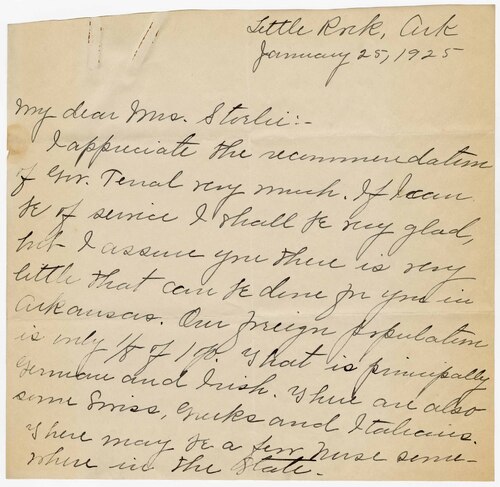 Little Rock, Ark
January 25, 1925
My dear Mrs. Storlie:-
I appreciate the recommendation
of Gov. Terral very much. If I can
be of service I shall be very glad,
but I assure you there is very
little that can be done for you in
Arkansas. Our foreign population
is only 1/8 of 1%. That is principally
German and Irish. There are also
some Swiss, Greeks and Italians.
There may be a few Norse some-
where in the State.